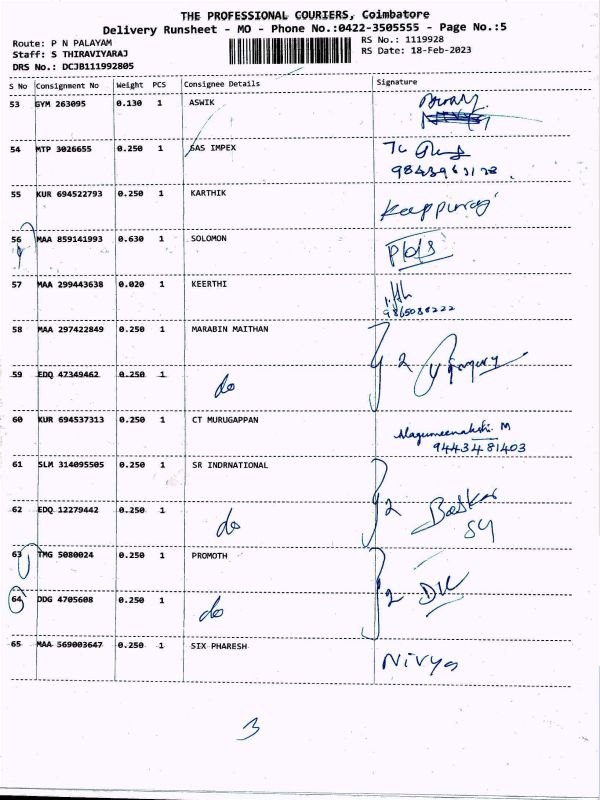 THE PROFESSIONAL COURIERS, Coimbatore
Delivery Runsheet - MO - Phone No.:0422-3505555 - Page No.:5
Route: P N PALAYAM
Staff: S THIRAVIYARAJ
DRS No.: DCJB111992805
RS No.: 1119928
RS Date: 18-Feb-2023
S No Consignment No Weight PCS Consignee Details Signature
53 GYM 263095 0.130 1 ASWIK
54 MTP 3026655 0.250 1 SAS IMPEX
55 KUR 694522793 0.250 1 KARTHIK
56 MAA 859141993 0.630 1 SOLOMON
57 MAA 299443638 0.020 1 KEERTHI
9865080222
58 MAA 297422849 0.250 1 MARABIN MAITHAN 2
59 EDQ 47349462 0.250 1 do
60 KUR 694537313 0.250 1 CT MURUGAPPAN Alagumeenakshi. M
9443481403
61 SLM 314095505 0.250 1 SR INDRNATIONAL
62 EDQ 12279442 0.250 1 do 2 Baskar
63 TMG 5080024 0.250 1 PROMOTH
64 DDG 4705608 0.250 1 do 2
65 MAA 569003647 0.250 1 SIX PHARESH Nivya
3